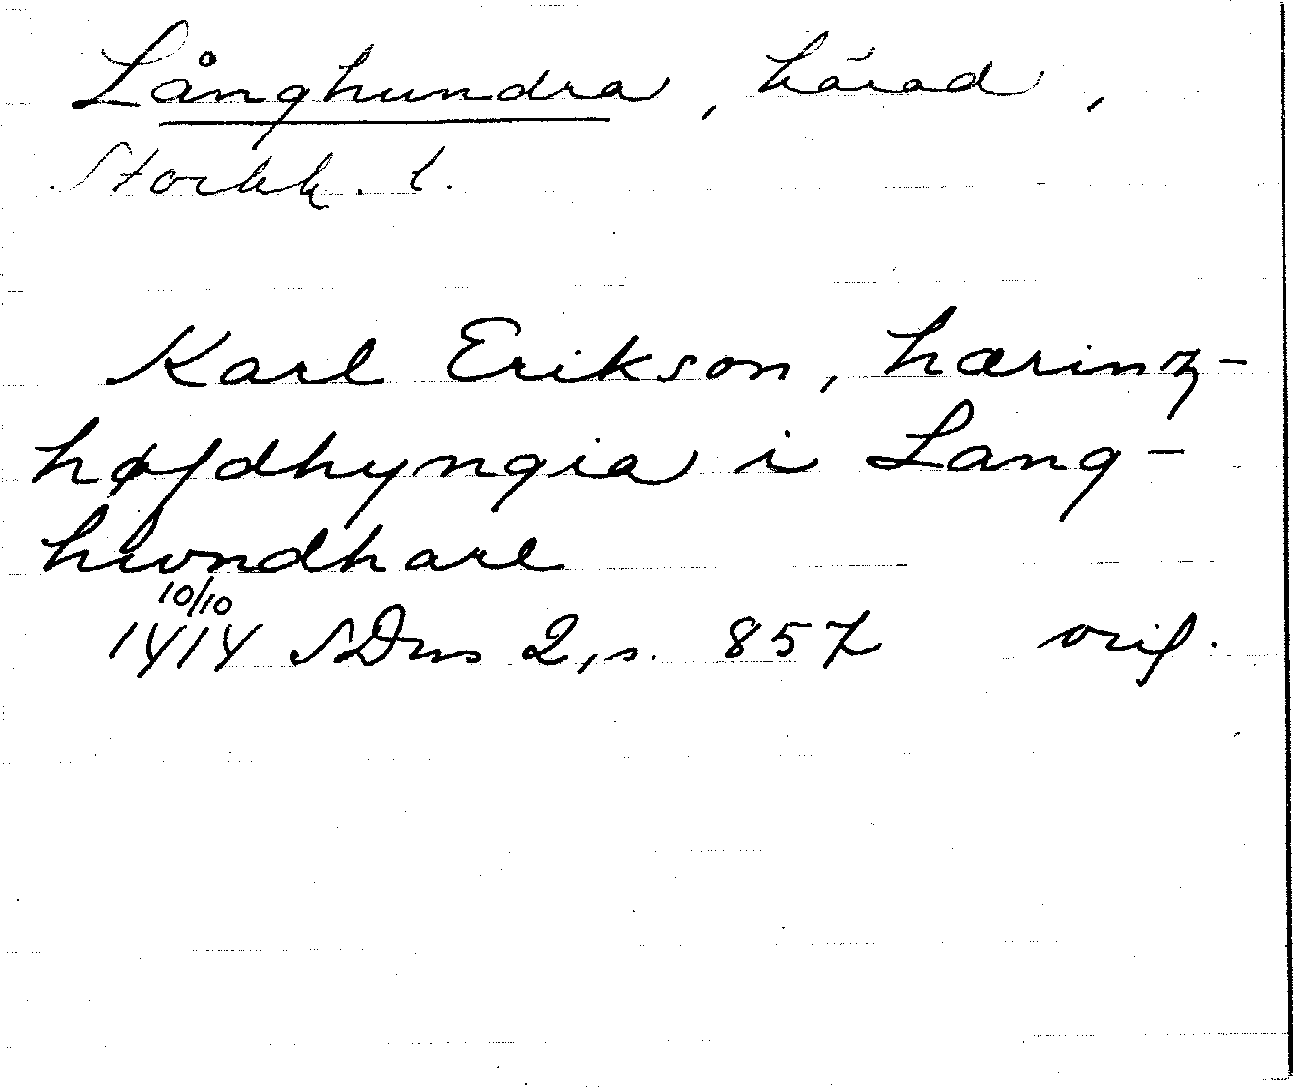 Långhundra, härad,
Stockh. l.
Karl Erikson, hærinz-
høfdhyngia i Lang-
hwndhare
10/10
1414 SDns 2, s. 857 orig.